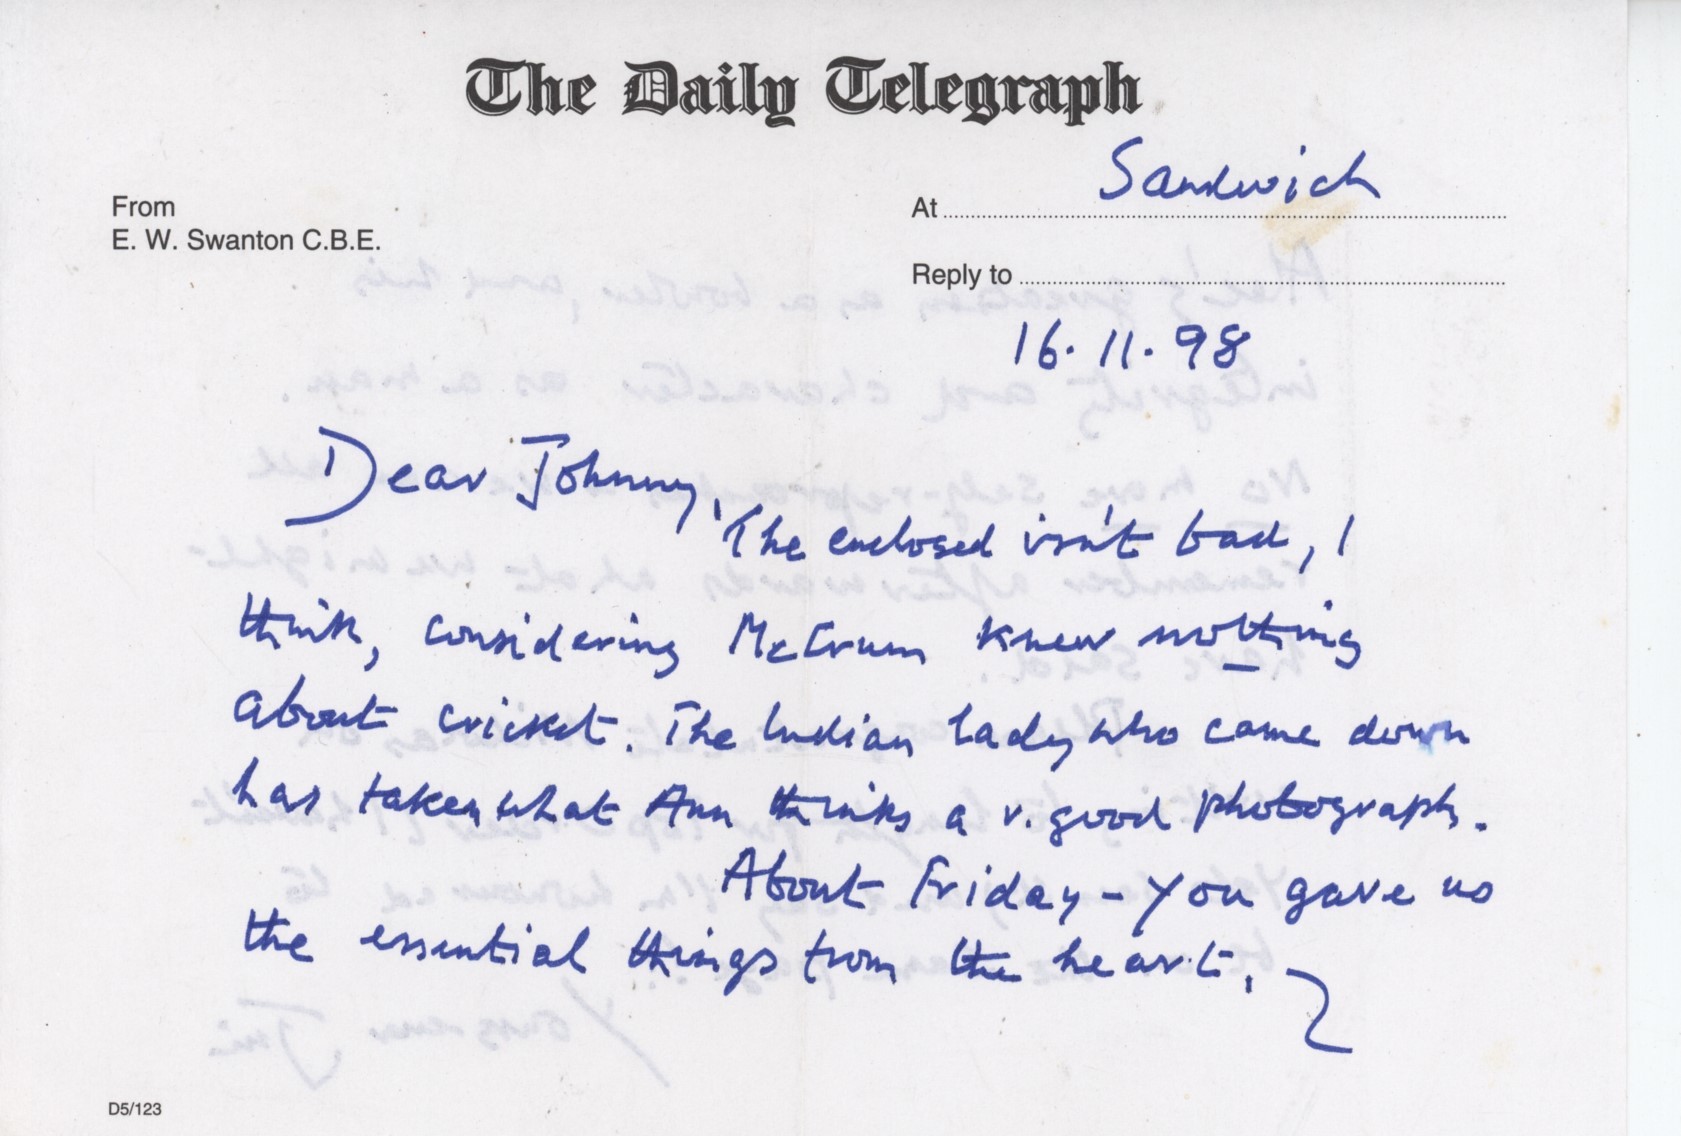 The Daily Telegraph
From
E. W. Swanton C.B.E.
At Sandwich
Reply to
16.11.98
Dear Johnny,
The enclosed isn't bad, I
think, considering McCrum knew nothing
about cricket. The Indian lady who came down
has taken what Ann thinks a v. good photograph.
About Friday – you gave us
the essential things from the heart,
D5/123